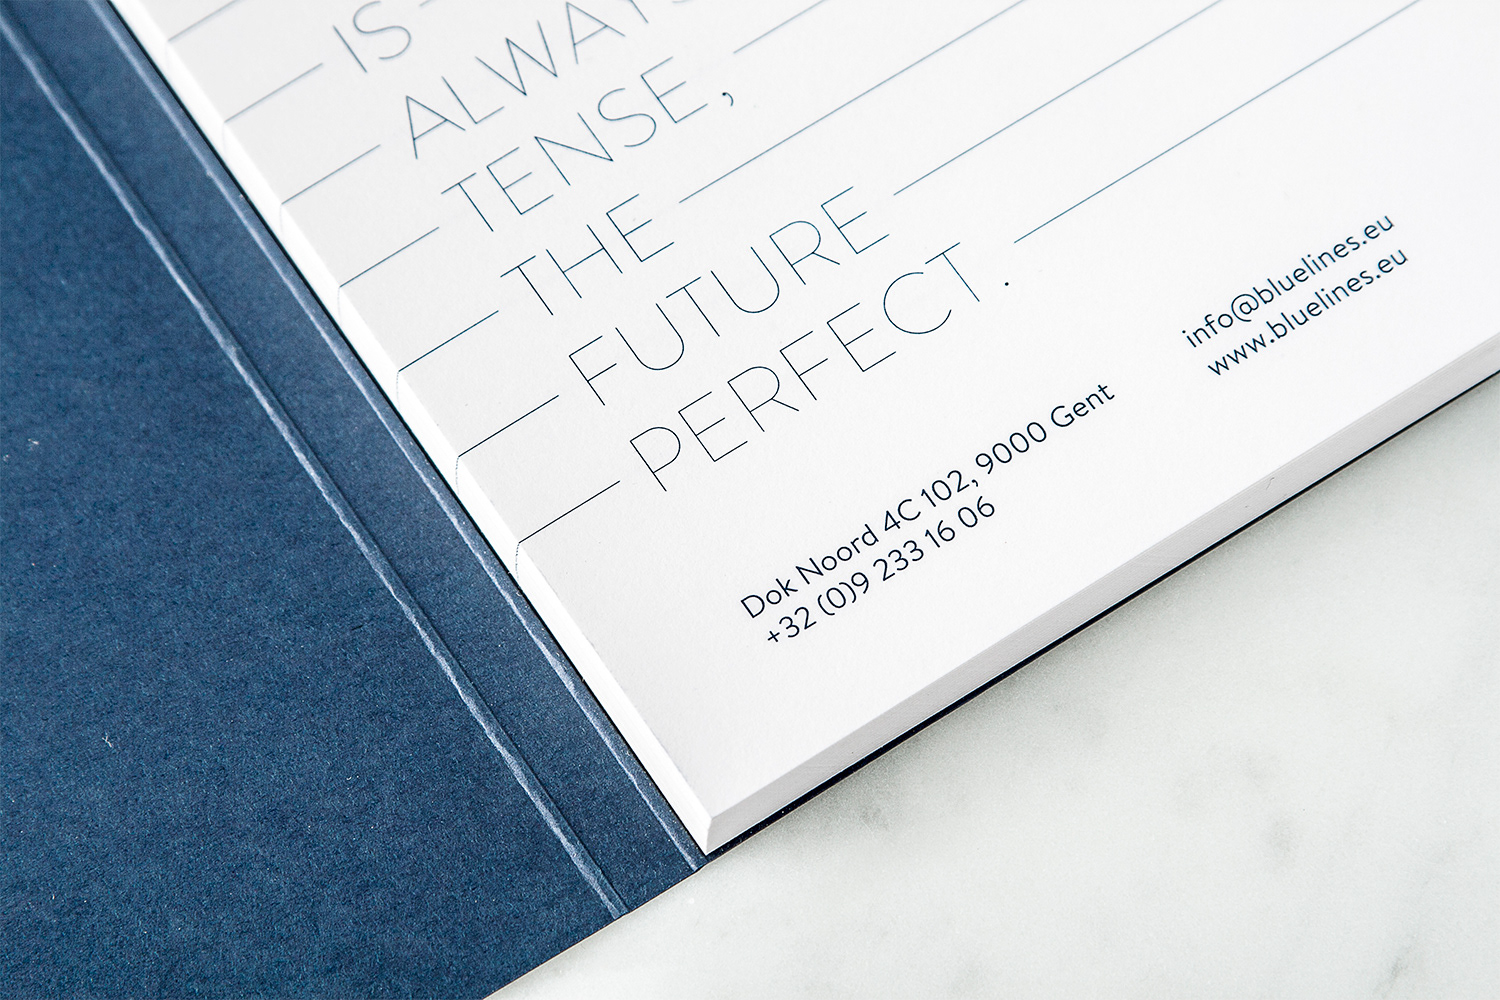 IS
ALWAYS
TENSE,
THE
FUTURE
PERFECT.
info@bluelines.eu
www.bluelines.eu
Dok Noord 4C 102, 9000 Gent
+32 (0)9 233 16 06